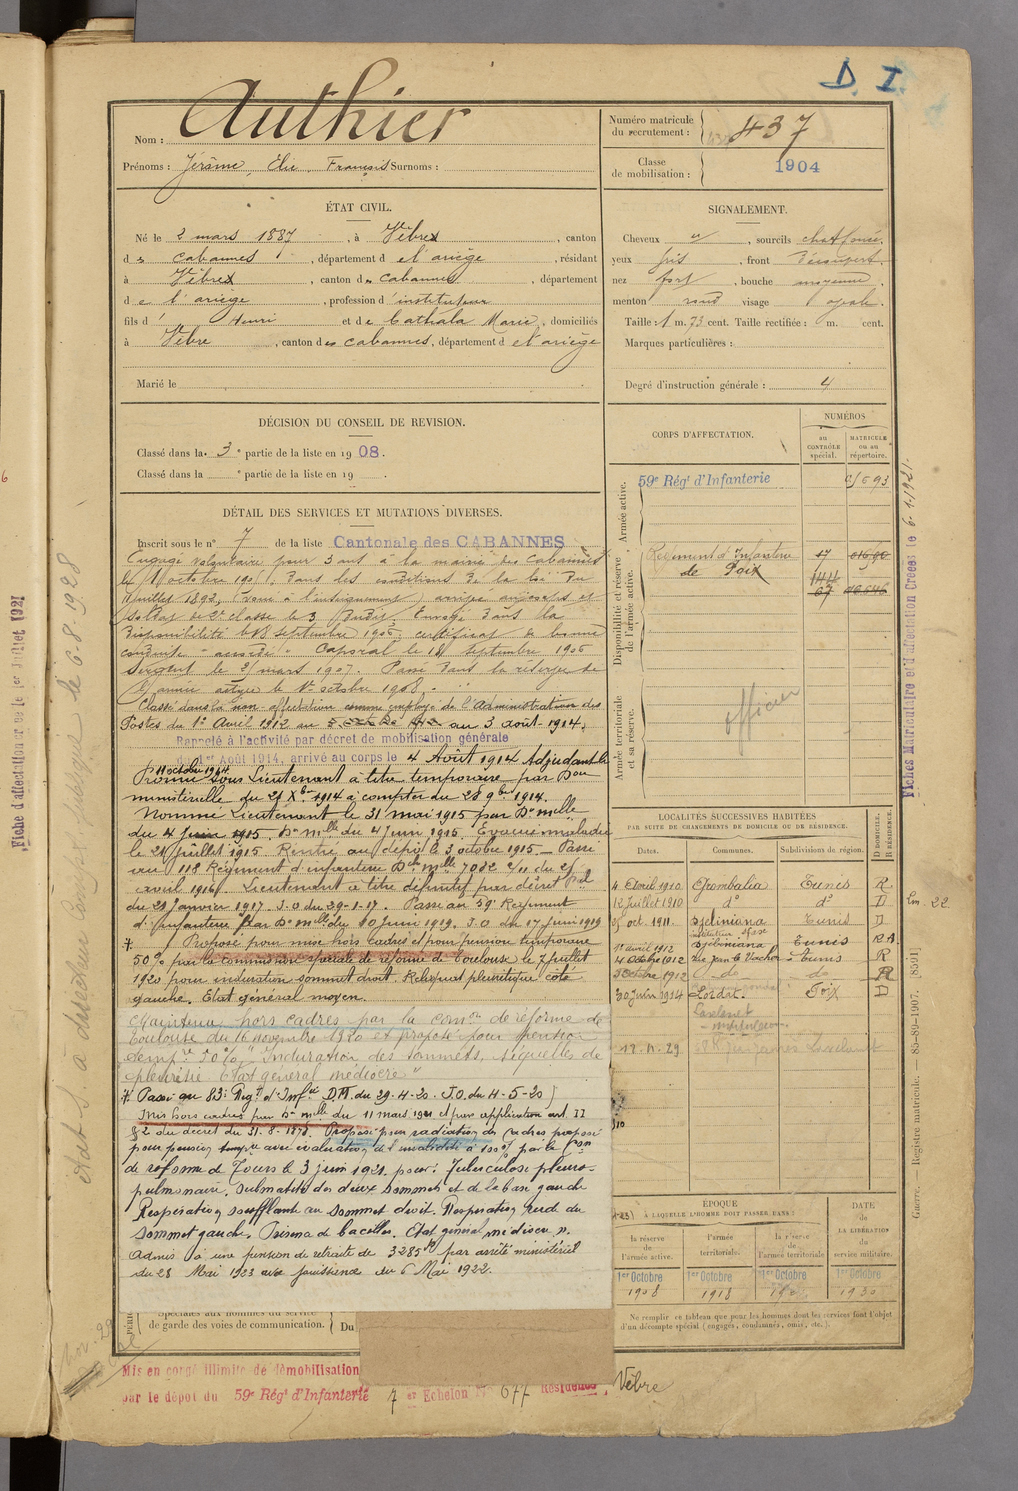 D. I.
Authier
Nom :
Prénoms : Jérôme, Elie, François Surnoms :
Numéro matricule du recrutement : 437
Classe de mobilisation : 1904
ÉTAT CIVIL.
Né le 2 mars 1887, à Vèbre, canton
des Cabannes, département de l'ariège, résidant
à Vèbre, canton des Cabannes, département
de l'ariège, profession d'instituteur
fils d' Henri et de Cathala Marie, domiciliés
à Vèbre, canton des Cabannes, département de l'ariège
Marié le
SIGNALEMENT.
Cheveux, sourcils
yeux gris, front découvert.
nez fort, bouche moyenne.
menton rond visage ovale.
Taille : 1 m. 73 cent. Taille rectifiée : m. cent.
Marques particulières :
Degré d'instruction générale : 4
DÉCISION DU CONSEIL DE REVISION.
Classé dans la 3e partie de la liste en 1908.
Classé dans la e partie de la liste en 19
DÉTAIL DES SERVICES ET MUTATIONS DIVERSES.
Inscrit sous le n° 7 de la liste Cantonale des CABANNES
Engagé volontaire pour 3 ans à la mairie des Cabannes
le 1 octobre 190 dans les conditions de la loi du
juillet 1892
soldat de 2e classe le 3 Envoyé dans la
disponibilité le 18 septembre 1906, certificat de bonne
conduite "accordé" Caporal le 18 septembre 1906
Sergent le mars 1907. Passé dans la réserve de
l'armée active le 1er octobre 1908.
Classé dans la non-affectation comme employé de l'Administration des
Postes du 1er Avril 1912 au 3 août 1914.
Rappelé à l'activité par décret de mobilisation générale
du 1er Août 1914, arrivé au corps le 4 Août 1914 Adjudant le
11 octobre 1914
Promu sous Lieutenant à titre temporaire par Don
ministérielle du 21 Xbre 1914 à compter du 28 9bre 1914.
Nommé Lieutenant le 31 mai 1915 par Don mlle
du 4 juin 1915. Don mlle du 4 juin 1915. Evacué malade
le 21 juillet 1915 Rentré au dépôt le 3 octobre 1915. Passé
au 118 Régiment d'infanterie mlle 7082 2/11 du
avril 1916. Lieutenant à titre définitif par décret Pal
du 21 Janvier 1917. J.O du 29-1-17. Passé au 59 Régiment
d'infanterie par Don mlle du 10 Juin 1919. J.O du 17 Juin 1919
Proposé pour mise hors cadres et pour pension temporaire
50% par la commission spéciale de réforme de Toulouse le 7 juillet
1920 pour induration sommet droit. Reliquat pleurétique côté
gauche. Etat général moyen.
Maintenu hors cadres par la comon de réforme de
Toulouse du 16 novembre 1920 et proposé pour pension
temp. 50% "Induration des sommets, séquelles de
pleurésie Etat général médiocre"
Passé au 83e Regt d'Infie D.M. du 29-4-20. J.O. du 4-5-20)
Mis hors cadres par Don mlle du 11 mars 1921 et par application art. II
§2 du décret du 31-8-1878. Proposé pour radiation des Cadres proposé
pour pension tempre avec évaluation d'invalidité à 100% par la Con
de réforme de Tours le 3 juin 1921. pour : Tuberculose pleuro-
pulmonaire. submatité des deux sommets et de la base gauche
Respiration soufflante au sommet droit. Respiration rude du
sommet gauche. Présence de bacilles. Etat général médiocre ".
Admis à une pension de retraite de 3285 frs par arrêté ministériel
du 28 Mai 1923 avec jouissance du 6 Mai 1922.
Spéciales aux hommes du service
de garde des voies de communication. Du
Mis en congé illimité de démobilisation
par le dépôt du 59e Régt d'Infanterie 7 er Echelon N° 677 Résidence, Vèbre
CORPS D'AFFECTATION.
NUMÉROS
au CONTRÔLE spécial.
MATRICULE ou au répertoire.
Armée active.
59e Régt d'Infanterie
Disponibilité et réserve de l'armée active.
Régiment d'Infanterie
de Foix
Armée territoriale et sa réserve.
officier
LOCALITÉS SUCCESSIVES HABITÉES
PAR SUITE DE CHANGEMENTS DE DOMICILE OU DE RÉSIDENCE.
Dates. Communes. Subdivisions de région. D DOMICILE. R RÉSIDENCE.
4 Avril 1910 Grombalia Tunis R
12 Juillet 1910 do do D
oct. 1911 Djebiniana Tunis D
instituteur Sfax
1er avril 1912 Djebiniana Tunis R
4 Octobre 1912 Tunis R
Octobre 1912 do do R
30 Juin 1914 Lordat. Foix D
Castelnet
12. 11. 29
EPOQUE
À LAQUELLE L'HOMME DOIT PASSER DANS :
la réserve de l'armée active. l'armée territoriale. la réserve de l'armée territoriale
DATE de LA LIBÉRATION du service militaire.
1er Octobre 1908
1er Octobre 1918
1er Octobre
1er Octobre 1930
Ne remplir ce tableau que pour les hommes dont les services font l'objet
d'un décompte spécial (engagés, condamnés, omis, etc.).
Fiches Matriculaire et d'affectation Créées le 6.1.1921.
Guerre. — Registre matricule. — 85-89-1907. [8591]
Fiche d'affectation créée le 1er Juillet 1921
le 6.8.1928